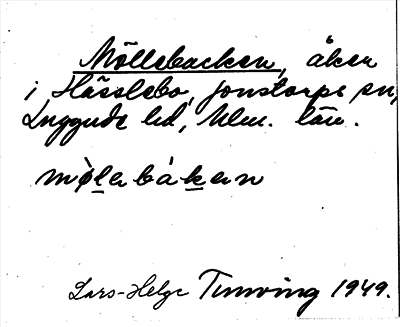 Möllebacken, åker
i Hässlebo, Jonstorps sn,
Luggude hd, Mlm. län.
mø̀lebákeɴ
Lars-Helge Tunving 1949.